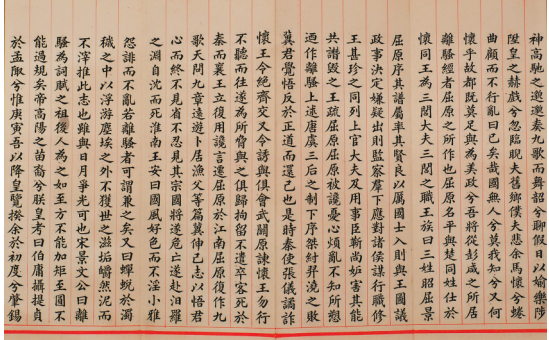 神高馳之邈邈奏九歌而舞韶兮聊假日以媮樂陟
陞皇之赫戲兮忽臨睨夫舊鄉僕夫悲余馬懷兮蜷
曲顧而不行亂曰已矣哉國無人兮莫我知兮又何
懷乎故都既莫足與為美政兮吾將從彭咸之所居
離騷經者屈原之所作也屈原名平與楚同姓仕於
懷王為三閭大夫三閭之職掌王族三姓曰昭屈景
屈原序其譜屬率其賢良以厲國士入則與王圖議
政事決定嫌疑出則監察羣下應對諸侯謀行職修
王甚珍之同列上官大夫及用事臣靳尚妬害其能
共譖毀之王疏屈原屈原被讒憂心煩亂不知所愬
迺作離騷上述唐虞三后之制下序桀紂羿澆之敗
冀君覺悟反於正道而還己也是時秦使張儀譎詐
懷王令絕齊交又令誘與俱會武關原諫懷王勿行
不聽而往遂為所脅與之俱歸拘留不遣卒客死於
秦而襄王立復用讒言遷屈原於江南屈原復作九
歌天問九章遠遊卜居漁父等篇冀伸己志以悟君
心而終不見省不忍見其宗國將遂危亡遂赴汨羅
之淵自沈而死淮南王安曰國風好色而不淫小雅
怨誹而不亂若離騷者可謂兼之矣又曰蟬蛻於濁
穢之中以浮游塵埃之外不獲世之滋垢皭然泥而
不滓推此志也雖與日月爭光可也宋景文公曰離
騷為詞賦之祖後人為之如至方不能加矩至圓不
能過規矣帝高陽之苗裔兮朕皇考曰伯庸攝提貞
於孟陬兮惟庚寅吾以降皇覽揆余於初度兮肇錫